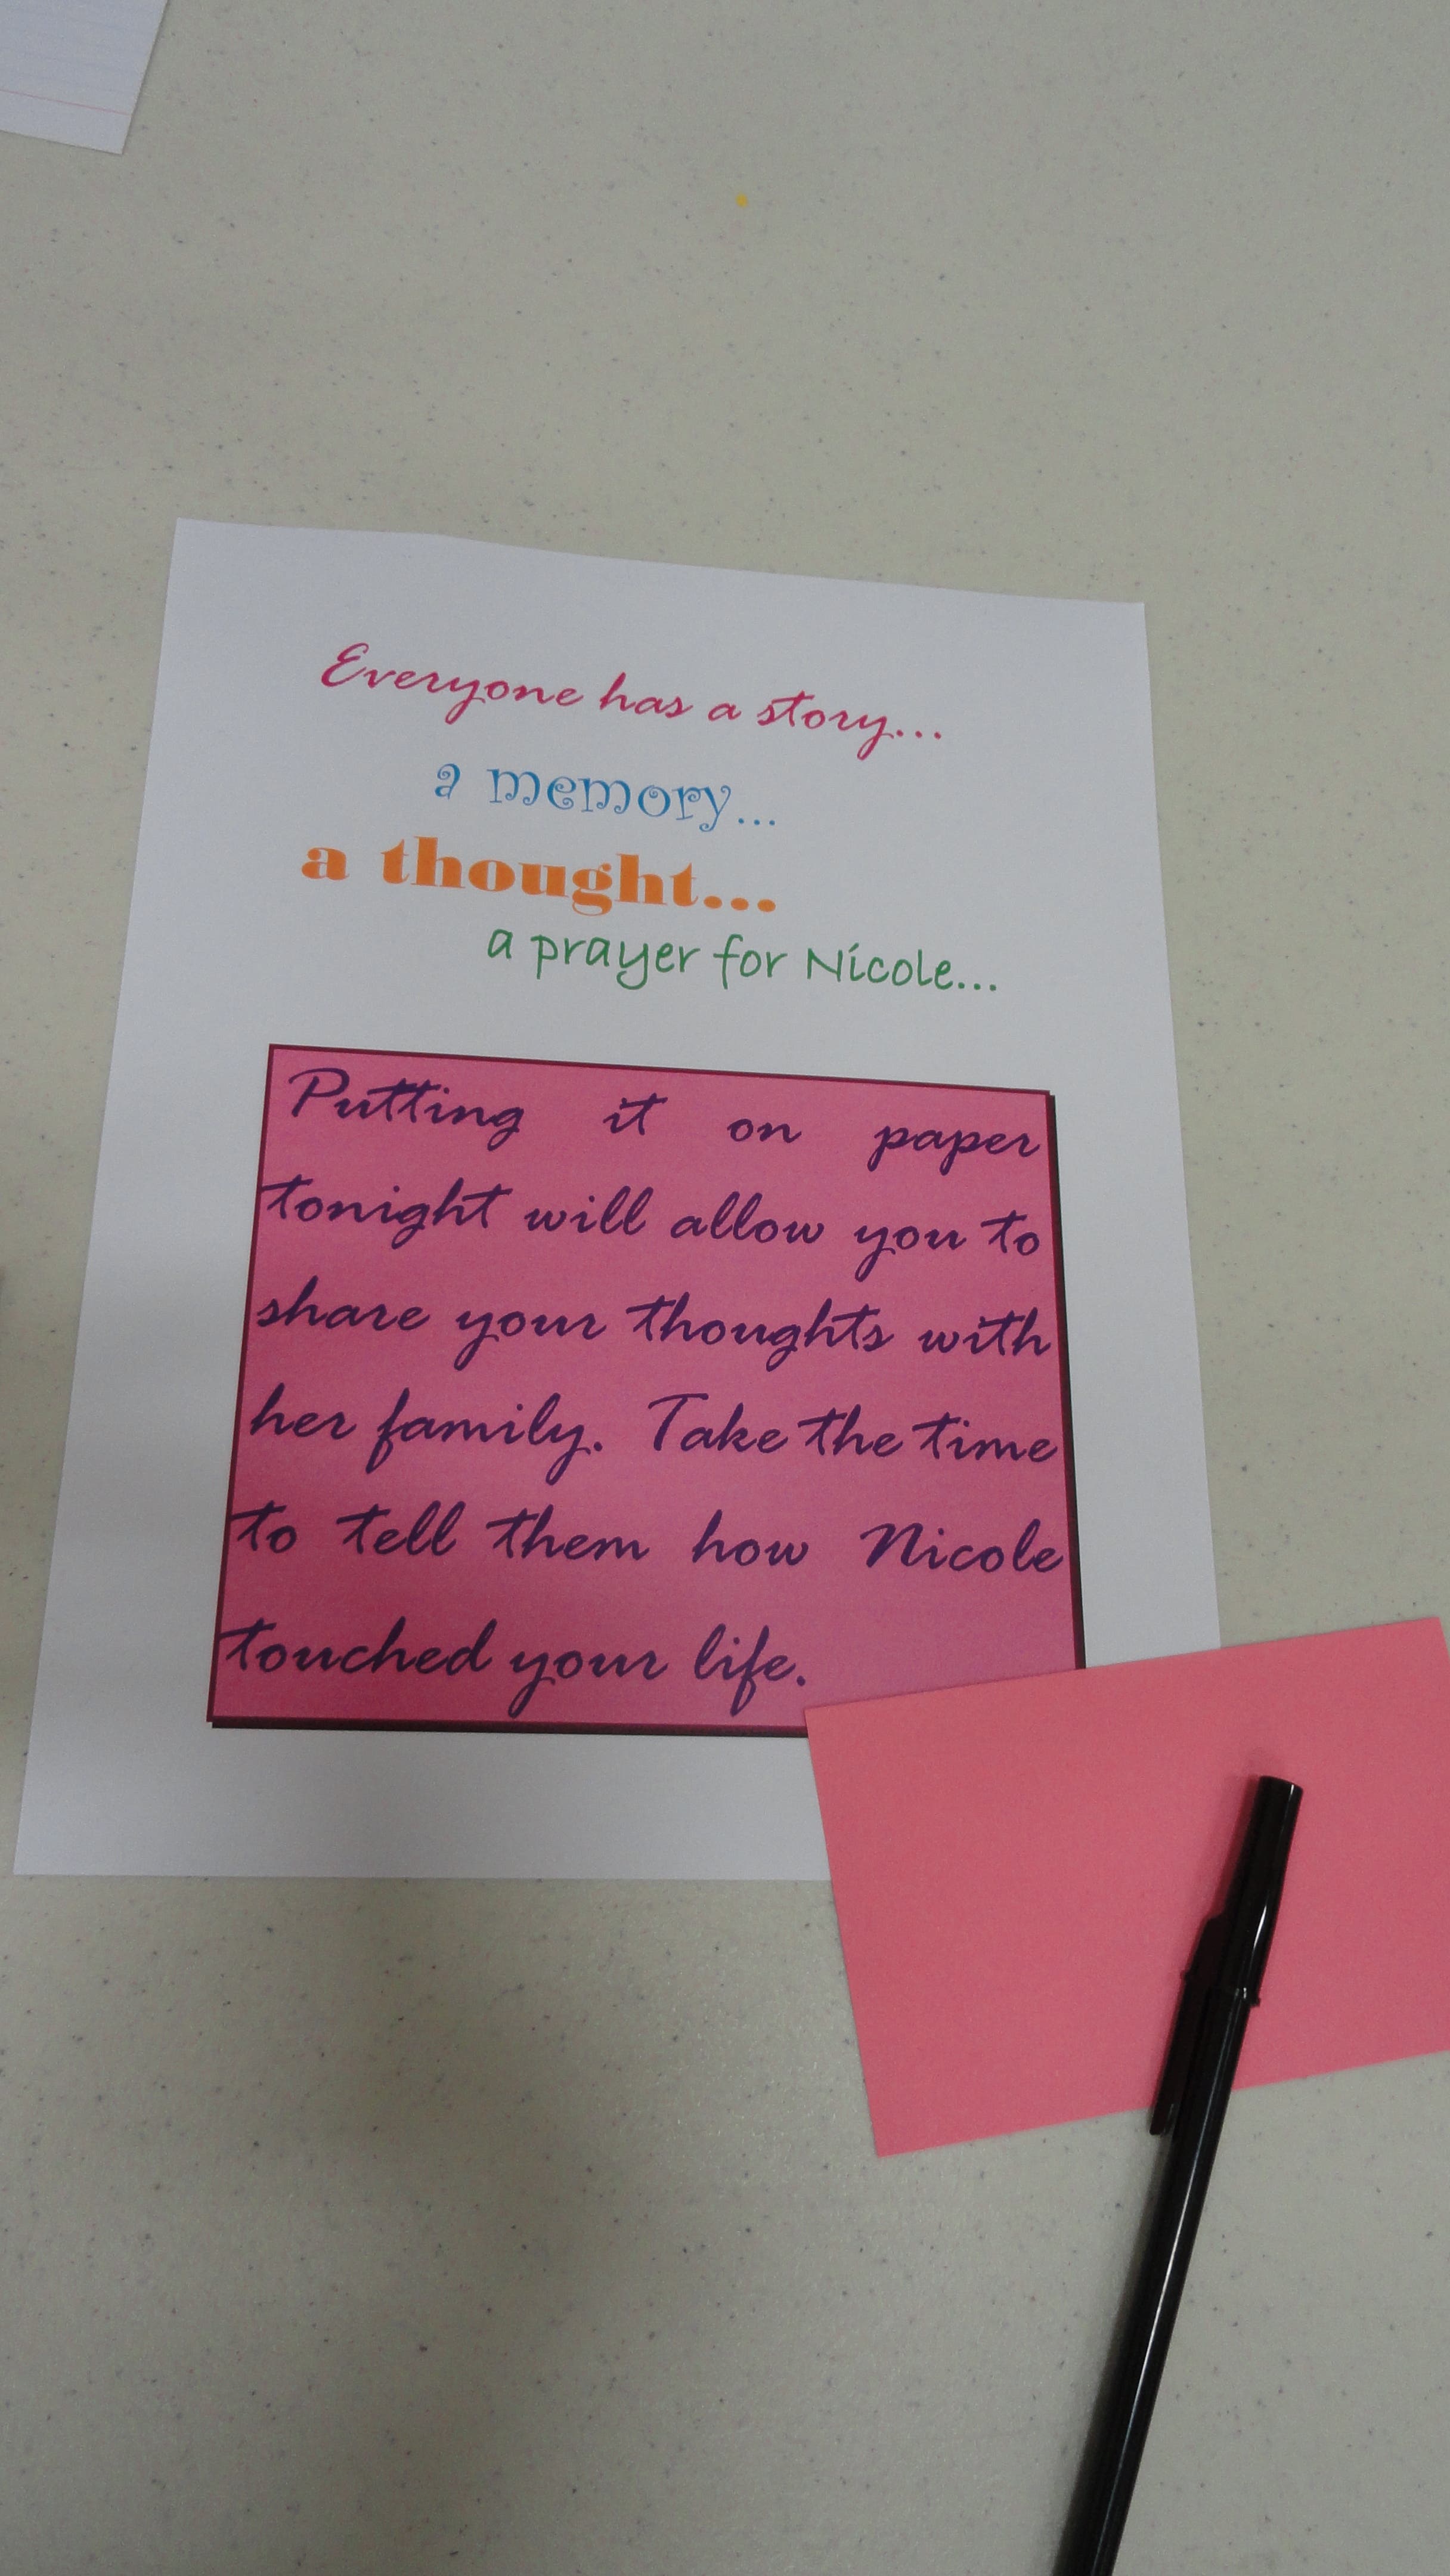 Everyone has a story...
a memory...
a thought...
a prayer for Nicole...
Putting it on paper
tonight will allow you to
share your thoughts with
her family. Take the time
to tell them how Nicole
touched your life.